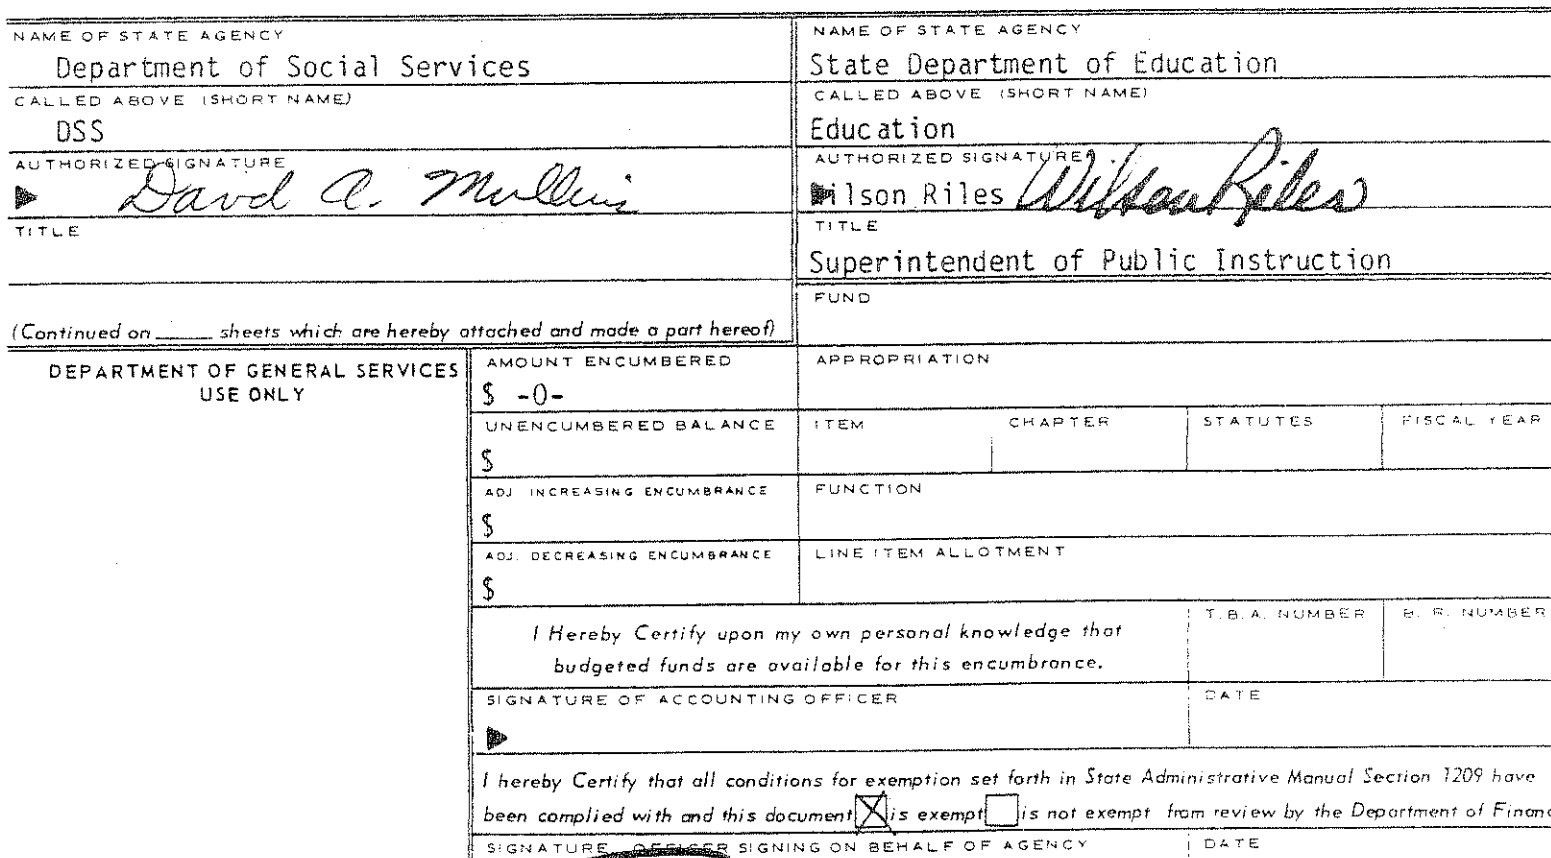 NAME OF STATE AGENCY
Department of Social Services
CALLED ABOVE (SHORT NAME)
DSS
AUTHORIZED SIGNATURE
David A. Mullins
TITLE
(Continued on _____ sheets which are hereby attached and made a part hereof)
NAME OF STATE AGENCY
State Department of Education
CALLED ABOVE (SHORT NAME)
Education
AUTHORIZED SIGNATURE
Wilson Riles Wilson Riles
TITLE
Superintendent of Public Instruction
FUND
DEPARTMENT OF GENERAL SERVICES
USE ONLY
AMOUNT ENCUMBERED
$ -0-
APPROPRIATION
UNENCUMBERED BALANCE
$
ITEM CHAPTER STATUTES FISCAL YEAR
ADJ. INCREASING ENCUMBRANCE
$
FUNCTION
ADJ. DECREASING ENCUMBRANCE
$
LINE ITEM ALLOTMENT
I Hereby Certify upon my own personal knowledge that
budgeted funds are available for this encumbrance.
T.B.A. NUMBER B. R. NUMBER
SIGNATURE OF ACCOUNTING OFFICER DATE
I hereby Certify that all conditions for exemption set forth in State Administrative Manual Section 1209 have
been complied with and this document X is exempt is not exempt from review by the Department of Financ
SIGNATURE OFFICER SIGNING ON BEHALF OF AGENCY DATE